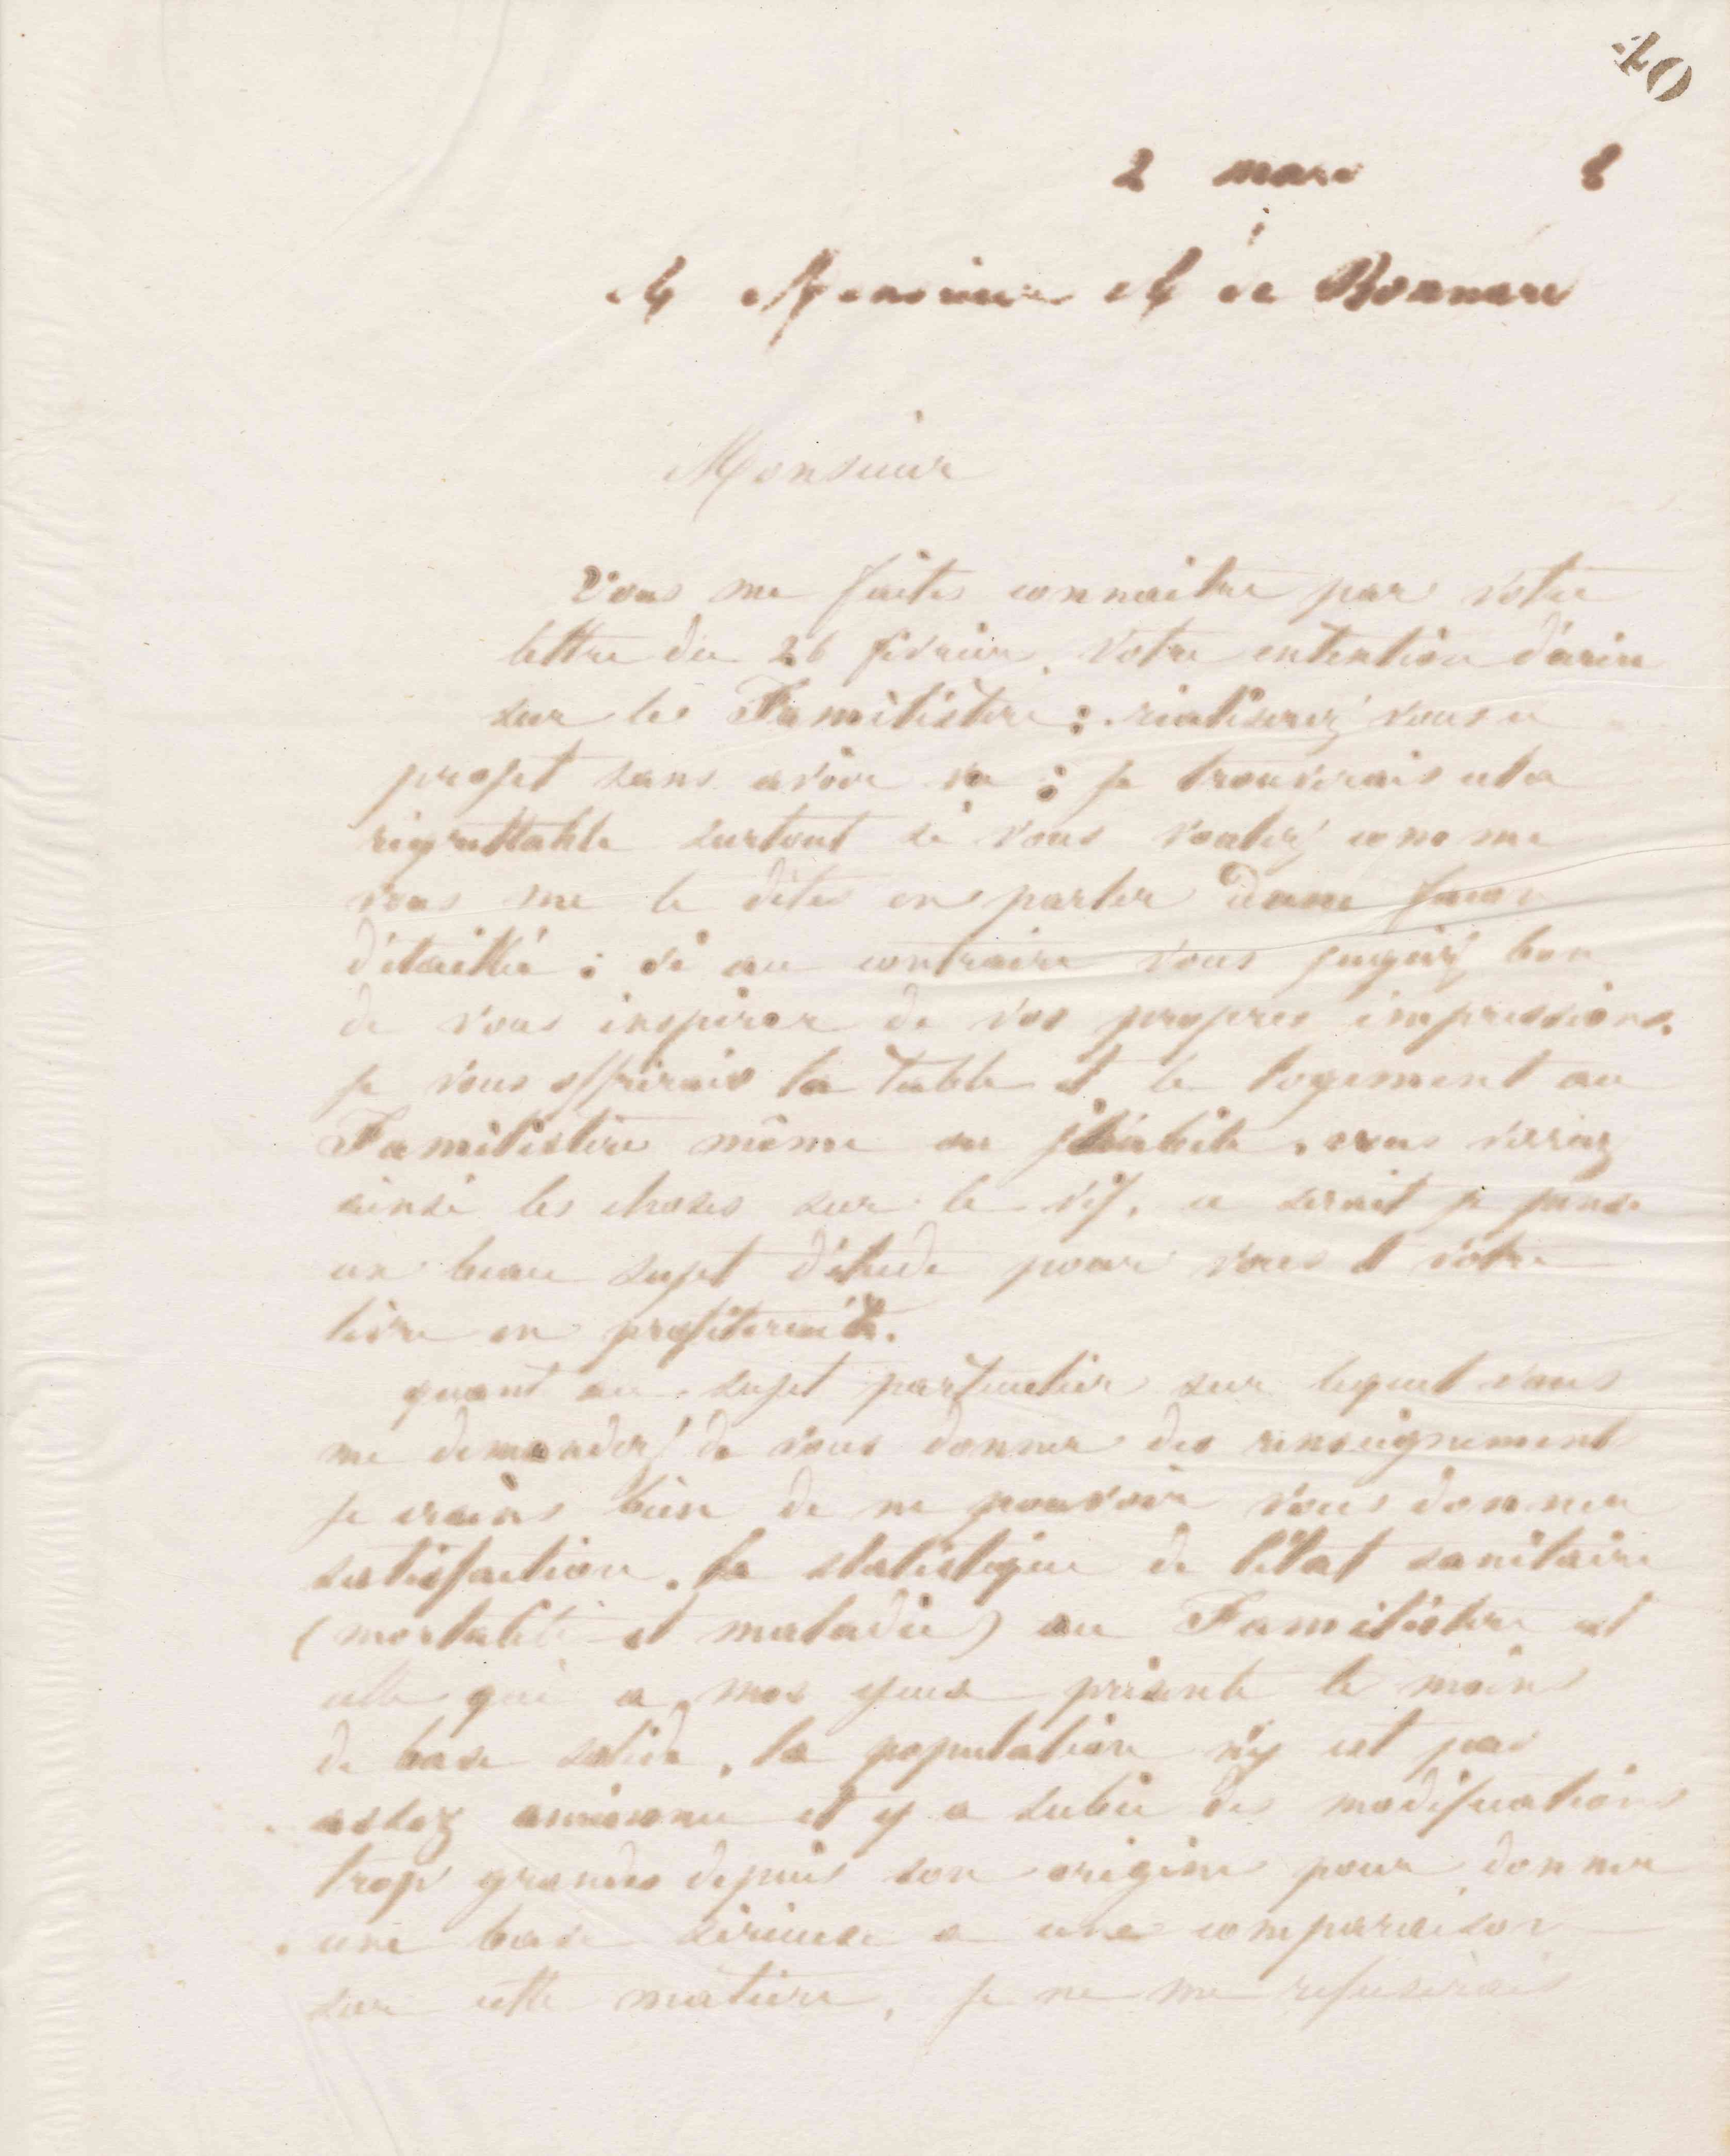 40
2 mars 8
A Monsieur A de Bonnard
Monsieur
Vous me faites connaitre par votre
lettre du 26 février. Votre intention d'écrire
sur le Familistère : réaliserez vous ce
projet sans avoir vu : je trouverais cela
regrettable surtout si vous voulez comme
vous me le dites en parler d'une façon
détaillée : si au contraire vous jugiez bon
de vous inspirer de vos propres impressions.
je vous offrirais la table et le logement au
Familistère même ou j'habite. vous verriez
ainsi les choses sur le vif. ce serait je pense
un beau sujet d'étude pour vous et votre
livre en profiterait.
quant au sujet particulier sur lequel vous
me demandez de vous donner des renseignement
je crains bien de ne pouvoir vous donner
satisfaction. la statistique de l'état sanitaire
(mortalité et maladie) au Familistère est
celle qui a mes yeux présente le moins
de base solide. la population n'y est pas
assez ancienne et y a subie des modifications
trop grandes depuis son origine pour donner
une base sérieuse a une comparaison
sur cette matière. je ne me refuserais